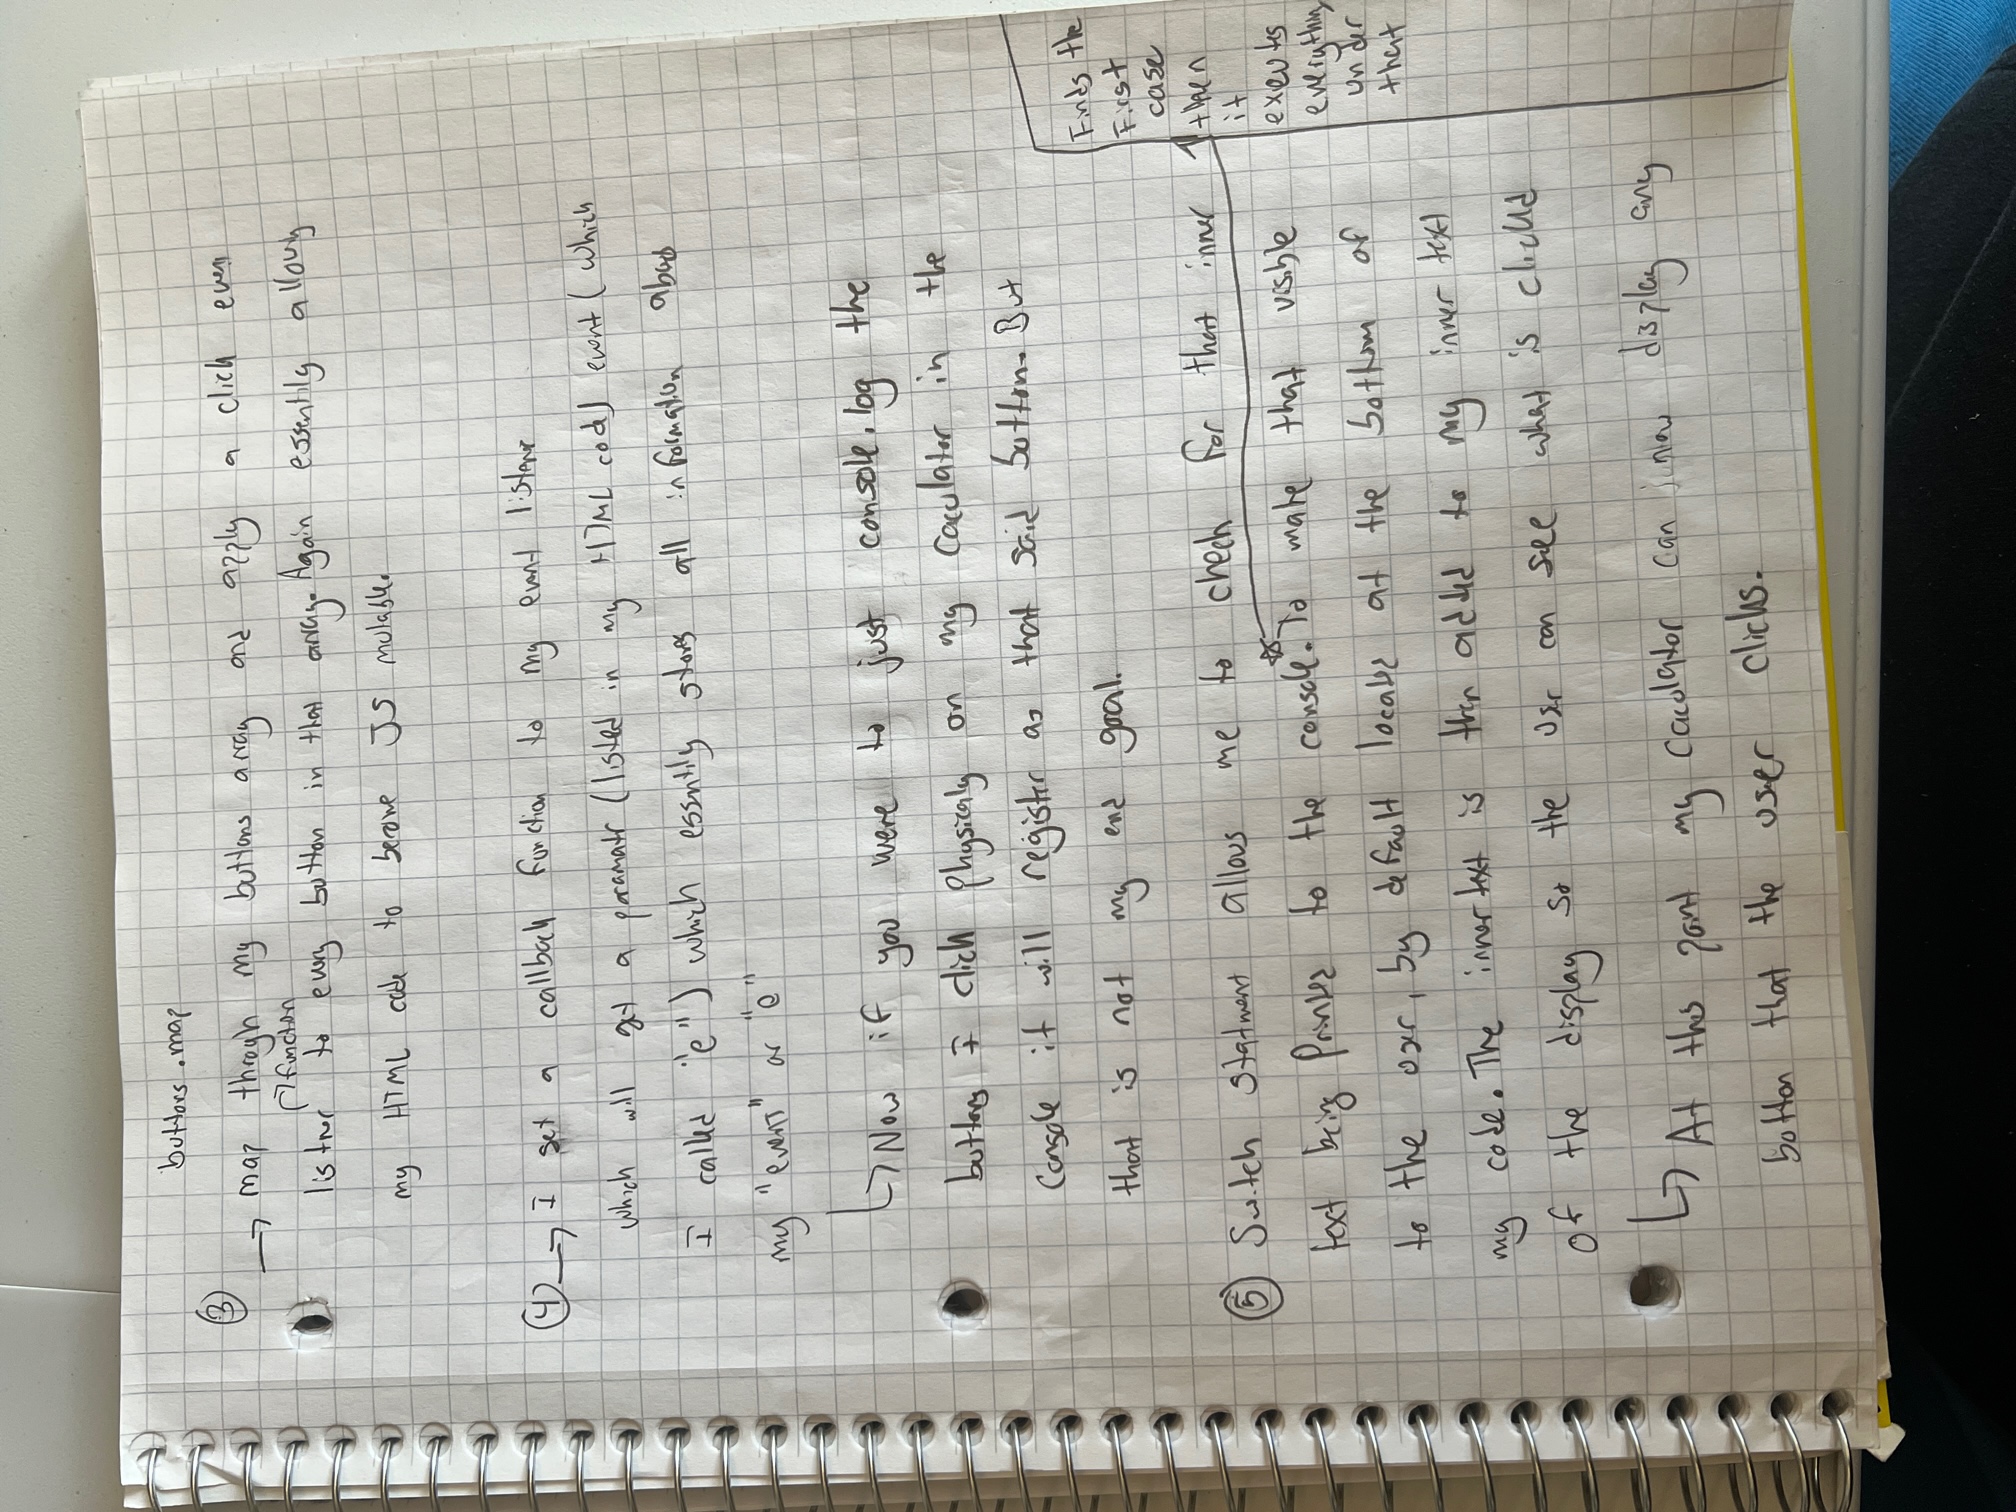 buttons.map
③
→ map throgh my buttons array and apply a click even
↱ function
listner to every button in that array. Again essentily allowing
my HTML code to become JS mutable.
④ → I set a callback function to my event listener
which will get a paramatr (listed in my HTML code) event (which
I called "e") which essntily stores all information about
my "event" or "e"
↳ Now if you were to just console.log the
buttons I click physicaly on my Caculator in the
console it will register as that said button. But
that is not my end goal.
⑤ Switch statment allows me to check for that inner
text being Printed to the console. ☆ To make that visible
to the user, by default located at the bottom of
my code. The inner text is then added to my inner text
of the display so the user can see what is clicked
↳ At this point my Caculator can now display any
button that the user clicks.
Finds the
First
case
then
it
executes
everything
under
that